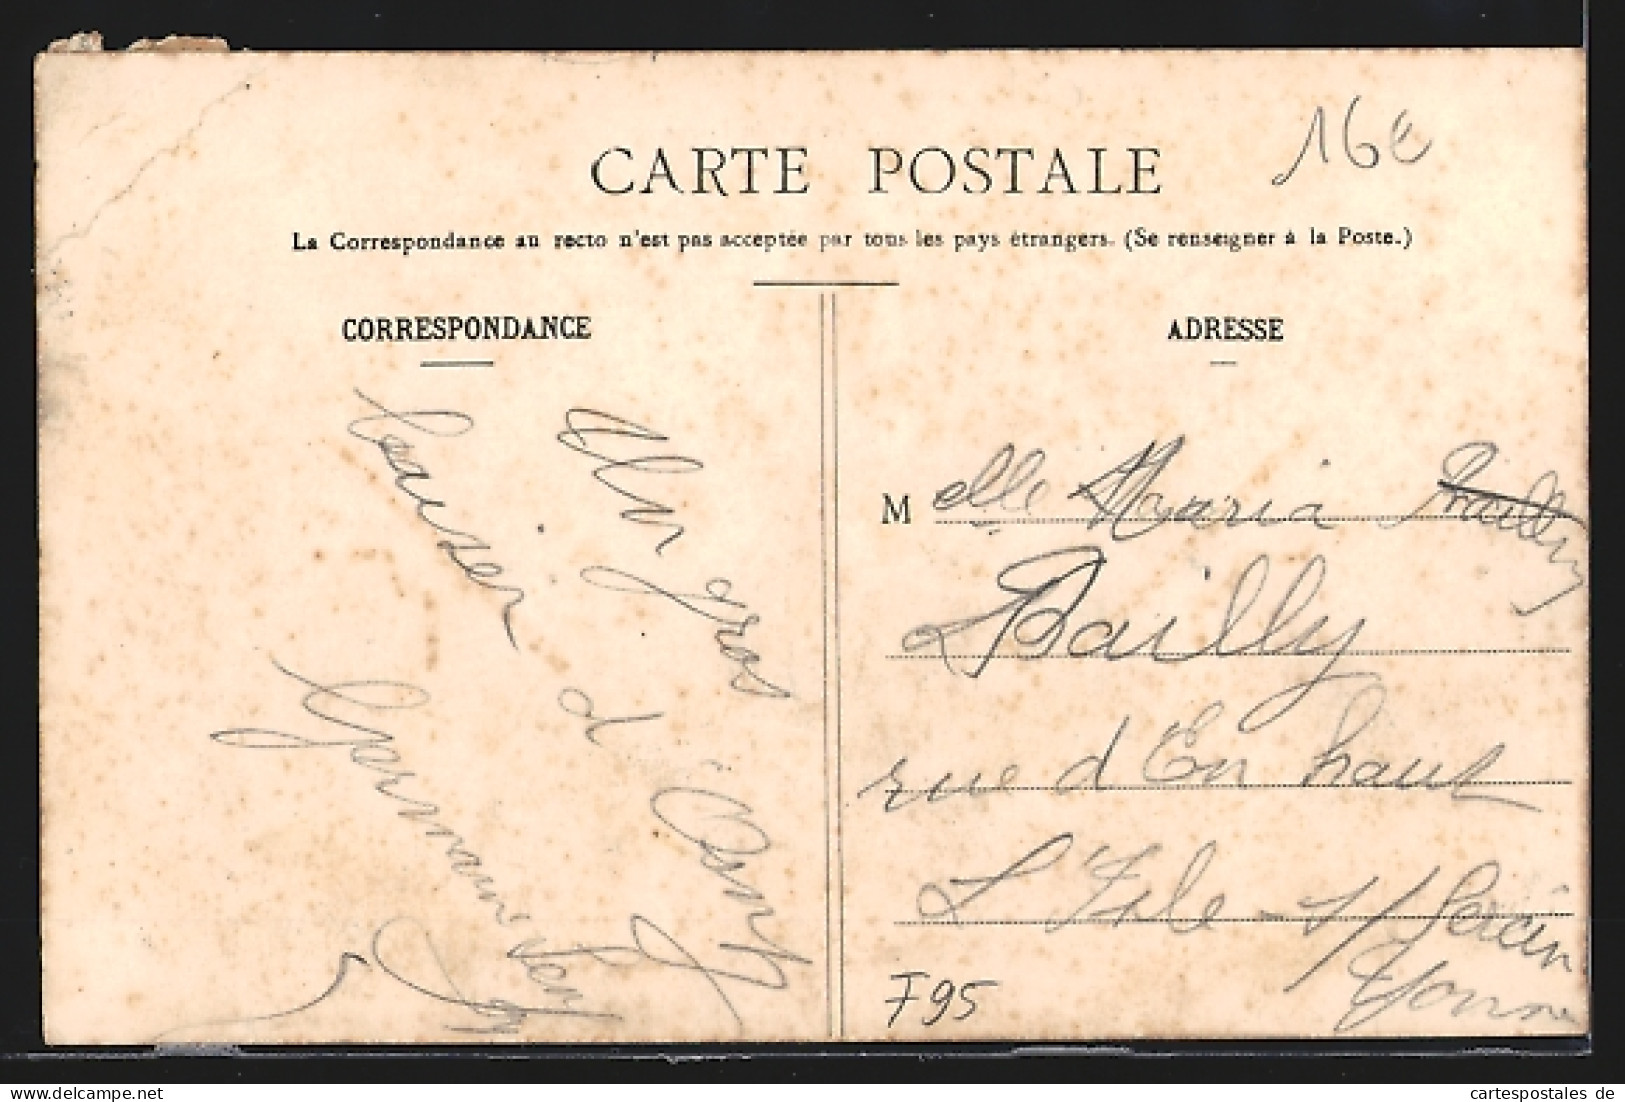 16€
CARTE POSTALE
La Correspondance au recto n'est pas acceptée par tous les pays étrangers. (Se renseigner à la Poste.)
CORRESPONDANCE
Un gros
baiser d'
Germaine
ADRESSE
M elle Maria Bailly
Bailly
rue d'En haut
L'Isle s/ Serein
Yonne
F95
cartespostales de